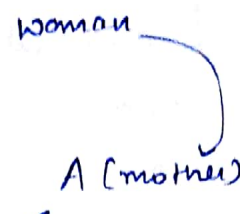 woman
A (mother)